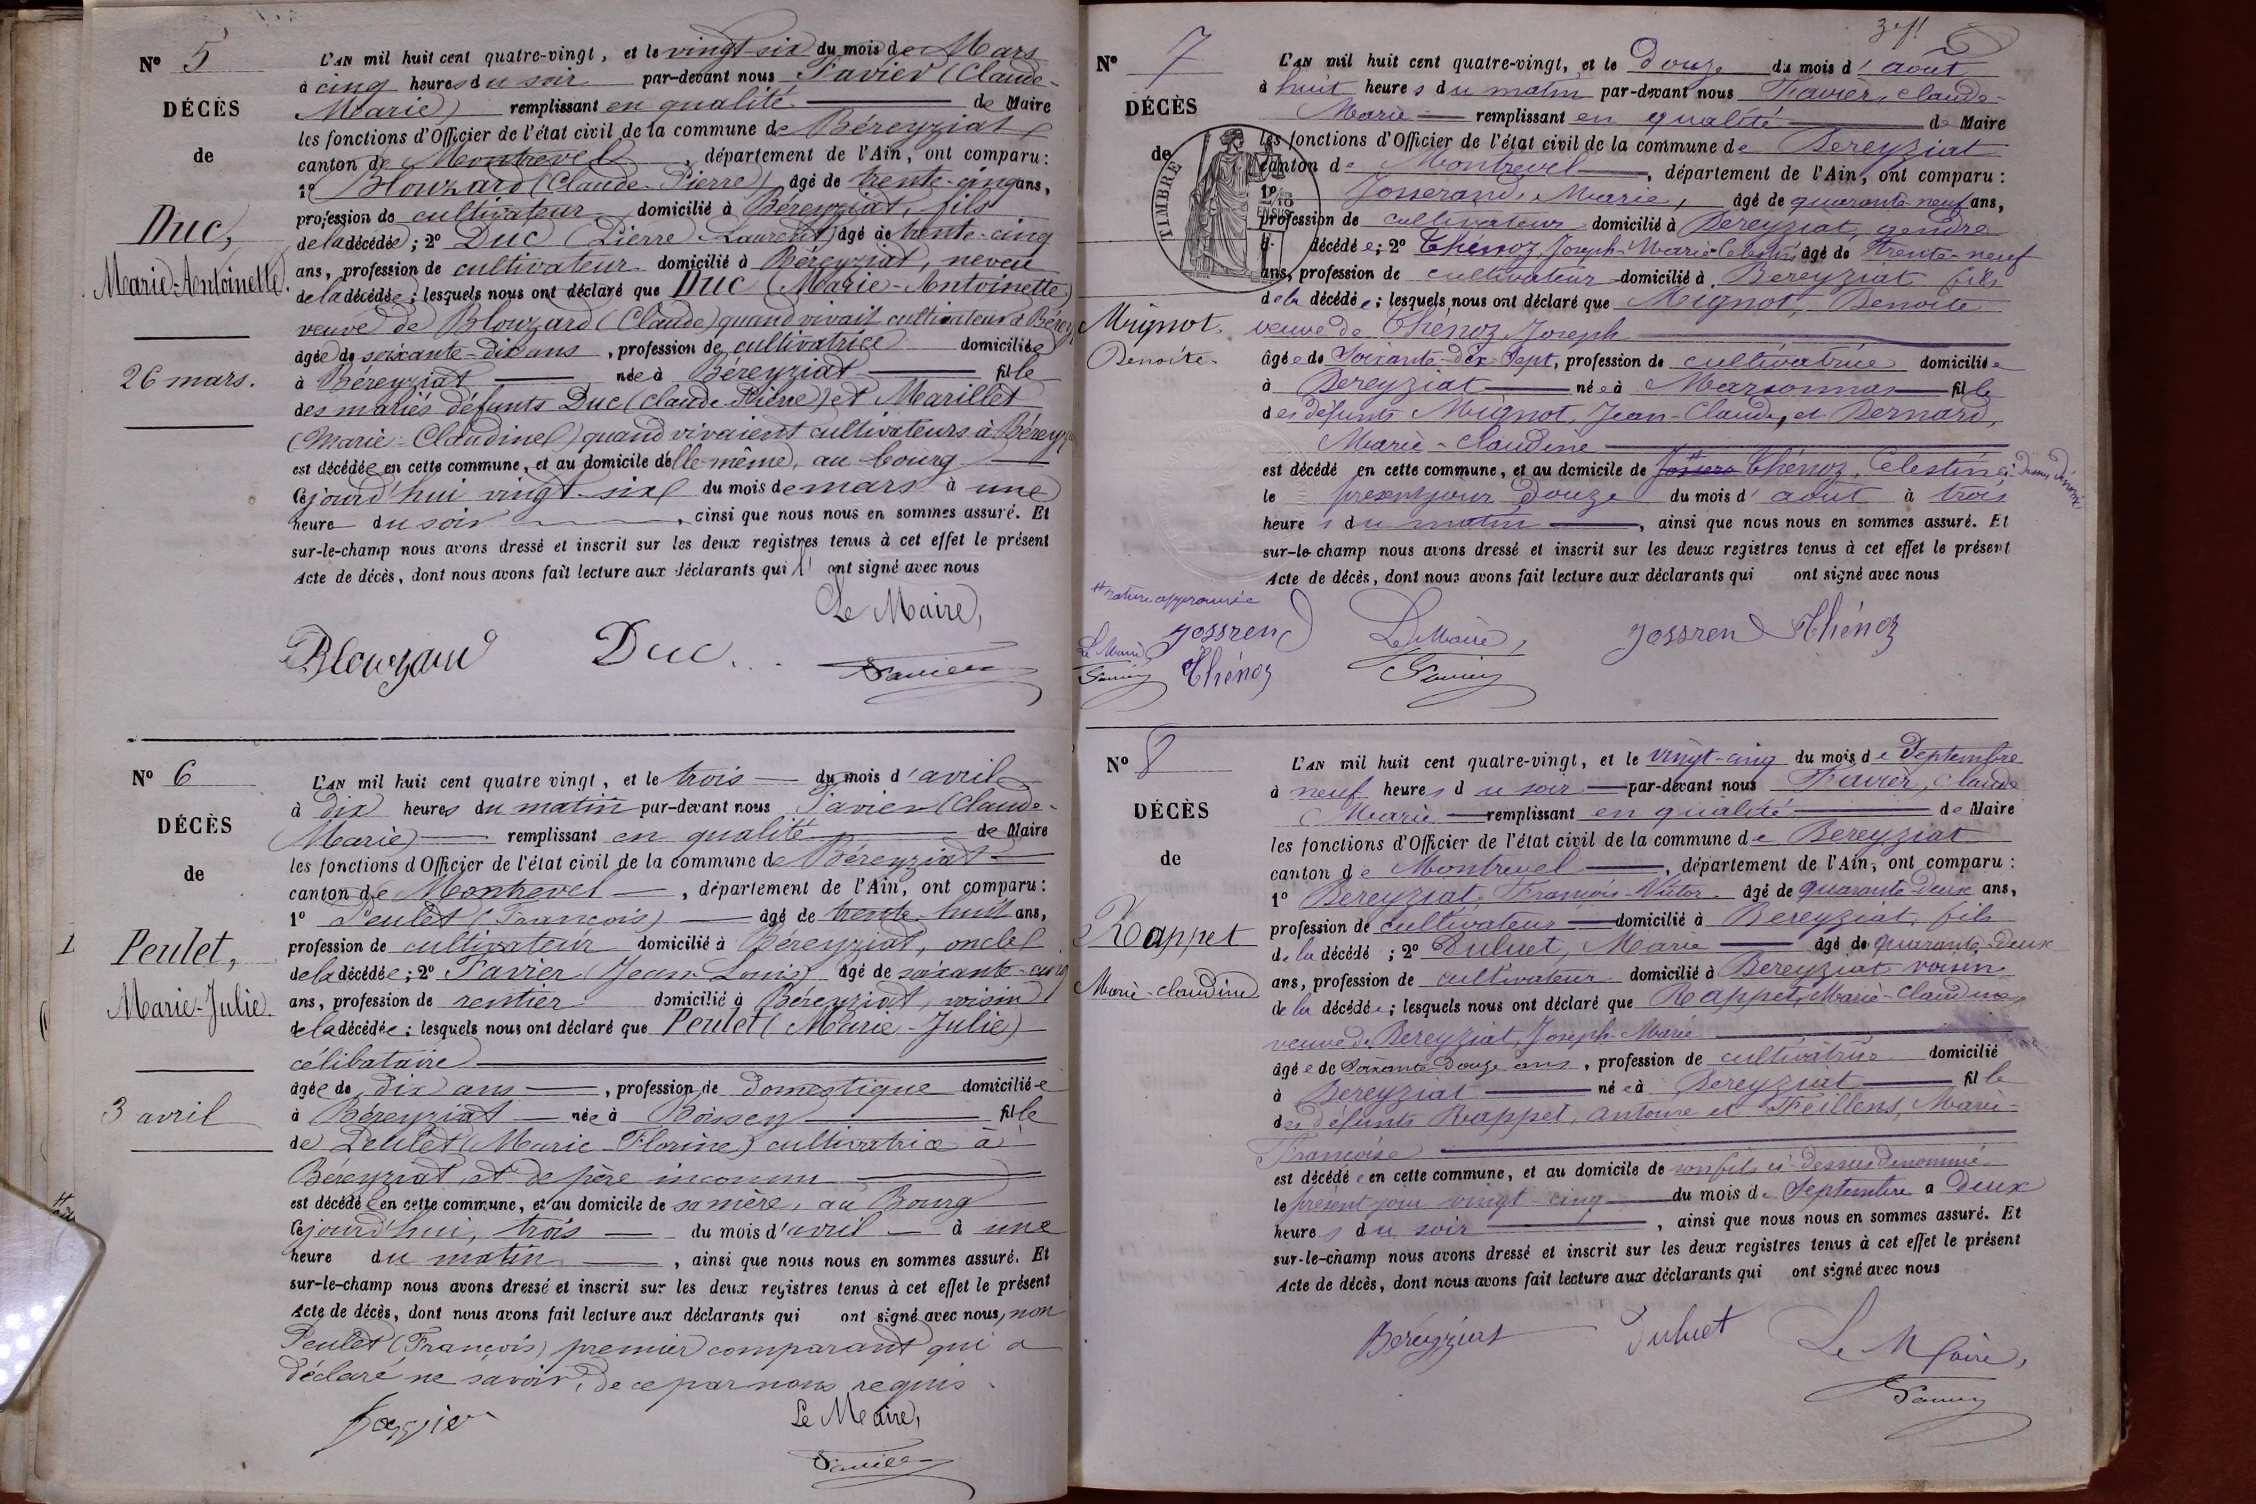 N° 5
DÉCÈS
de
Duc,
Marie-Antoinette.
26 mars.
L'AN mil huit cent quatre-vingt, et le vingt-six du mois de Mars
à cinq heures du soir par-devant nous Favier (Claude-
Marie) remplissant en qualité de Maire
les fonctions d'Officier de l'état civil de la commune de Béreyziat
canton de Montrevel, département de l'Ain, ont comparu:
1° Blouzard (Claude-Pierre) âgé de trente-cinq ans,
profession de cultivateur domicilié à Béreyziat, fils
de la décédée; 2° Duc (Pierre Laurent) âgé de trente-cinq
ans, profession de cultivateur domicilié à Béreyziat, neveu
de la décédée; lesquels nous ont déclaré que Duc (Marie-Antoinette)
veuve de Blouzard (Claude) quand vivait cultivateur à Bérey
âgée de soixante-dix ans, profession de cultivatrice domiciliée
à Béreyziat née à Béreyziat fille
des mariés défunts Duc (Claude-Pierre) et Marillet
(Marie-Claudine) quand vivaient cultivateurs à Béreyz
est décédée en cette commune, et au domicile d'elle-même, au bourg
Cejourd'hui vingt-six du mois de mars à une
heure du soir, ainsi que nous nous en sommes assuré. Et
sur-le-champ nous avons dressé et inscrit sur les deux registres tenus à cet effet le présent
Acte de décès, dont nous avons fait lecture aux déclarants qui l' ont signé avec nous
Le Maire,
Blouzard Duc Favier
N° 6
DÉCÈS
de
1
Peulet,
Marie-Julie.
3 avril
L'AN mil huit cent quatre vingt, et le trois du mois d'avril
à dix heures du matin par-devant nous Favier (Claude-
Marie) remplissant en qualité de Maire
les fonctions d'Officier de l'état civil de la commune de Béreyziat
canton de Montrevel, département de l'Ain, ont comparu:
1° Peulet (François) âgé de trente-huit ans,
profession de cultivateur domicilié à Béreyziat, oncle
de la décédée; 2° Favier (Jean-Louis) âgé de soixante-cinq
ans, profession de rentier domicilié à Béreyziat, voisin
de la décédée; lesquels nous ont déclaré que Peulet (Marie-Julie)
célibataire
âgée de dix ans, profession de domestique domiciliée
à Béreyziat née à Boissey fille
de Peulet (Marie-Florine) cultivatrice à
Béreyziat, et de père inconnu
est décédée en cette commune, et au domicile de sa mère, au Bourg
Cejourd'hui, trois du mois d'avril à une
heure du matin, ainsi que nous nous en sommes assuré. Et
sur-le-champ nous avons dressé et inscrit sur les deux registres tenus à cet effet le présent
Acte de décès, dont nous avons fait lecture aux déclarants qui ont signé avec nous, non
Peulet (François) premier comparant qui a
déclaré ne savoir, de ce par nous requis.
Le Maire,
Favier
N° 7
DÉCÈS
de
TIMBRE
Mignot
Benoite
L'AN mil huit cent quatre-vingt, et le Douze du mois d'août
à huit heures du matin par-devant nous Favier, Claude-
Marie remplissant en qualité de Maire
les fonctions d'Officier de l'état civil de la commune de Bereyziat
canton de Montrevel, département de l'Ain, ont comparu:
1° Josserand, Marie, âgé de quarante-neuf ans,
profession de cultivateur domicilié à Bereyziat, gendre
décédée; 2° Thénoz, Joseph-Marie-Celestin âgé de Trente-neuf
ans, profession de cultivateur domicilié à Bereyziat fils
de la décédée; lesquels nous ont déclaré que Mignot, Benoite
veuve de Thénoz Joseph
âgée de Soixante-dix-Sept, profession de cultivatrice domiciliée
à Bereyziat née à Marsonnas fille
des défunts Mignot, Jean-Claude, et Bernard,
Marie-Claudine
est décédé en cette commune, et au domicile de Thénoz, Celestin ci-dessus dénommé
le présent jour Douze du mois d'août à trois
heures du matin, ainsi que nous nous en sommes assuré. Et
sur-le-champ nous avons dressé et inscrit sur les deux registres tenus à cet effet le présent
Acte de décès, dont nous avons fait lecture aux déclarants qui ont signé avec nous
# rature approuvée
Le Maire Jossrend Le Maire, Jossrend Thénoz
Favier Thénoz Favier
N° 8
DÉCÈS
de
Rappet
Marie-Claudine
L'AN mil huit cent quatre-vingt, et le vingt-cinq du mois de Septembre
à neuf heures du soir par-devant nous Favier, Claude
Marie remplissant en qualité de Maire
les fonctions d'Officier de l'état civil de la commune de Bereyziat
canton de Montrevel, département de l'Ain, ont comparu:
1° Bereyziat, François-Victor âgé de quarante-deux ans,
profession de cultivateur domicilié à Bereyziat, fils
de la décédé; 2° Duluet, Marie âgé de quarante-deux
ans, profession de cultivateur domicilié à Bereyziat voisin
de la décédée; lesquels nous ont déclaré que Rappet, Marie-Claudine
veuve de Bereyziat, Joseph-Marie
âgée de Soixante-Douze ans, profession de cultivatrice domicilié
à Bereyziat née à Bereyziat fille
des défunts Rappet, Antoine et Feillens, Marie-
Françoise
est décédée en cette commune, et au domicile de son fils ci-dessus dénommé
le présent jour vingt-cinq du mois de Septembre à Deux
heures du soir, ainsi que nous nous en sommes assuré. Et
sur-le-champ nous avons dressé et inscrit sur les deux registres tenus à cet effet le présent
Acte de décès, dont nous avons fait lecture aux déclarants qui ont signé avec nous
Bereyziat Duluet Le Maire,
Favier